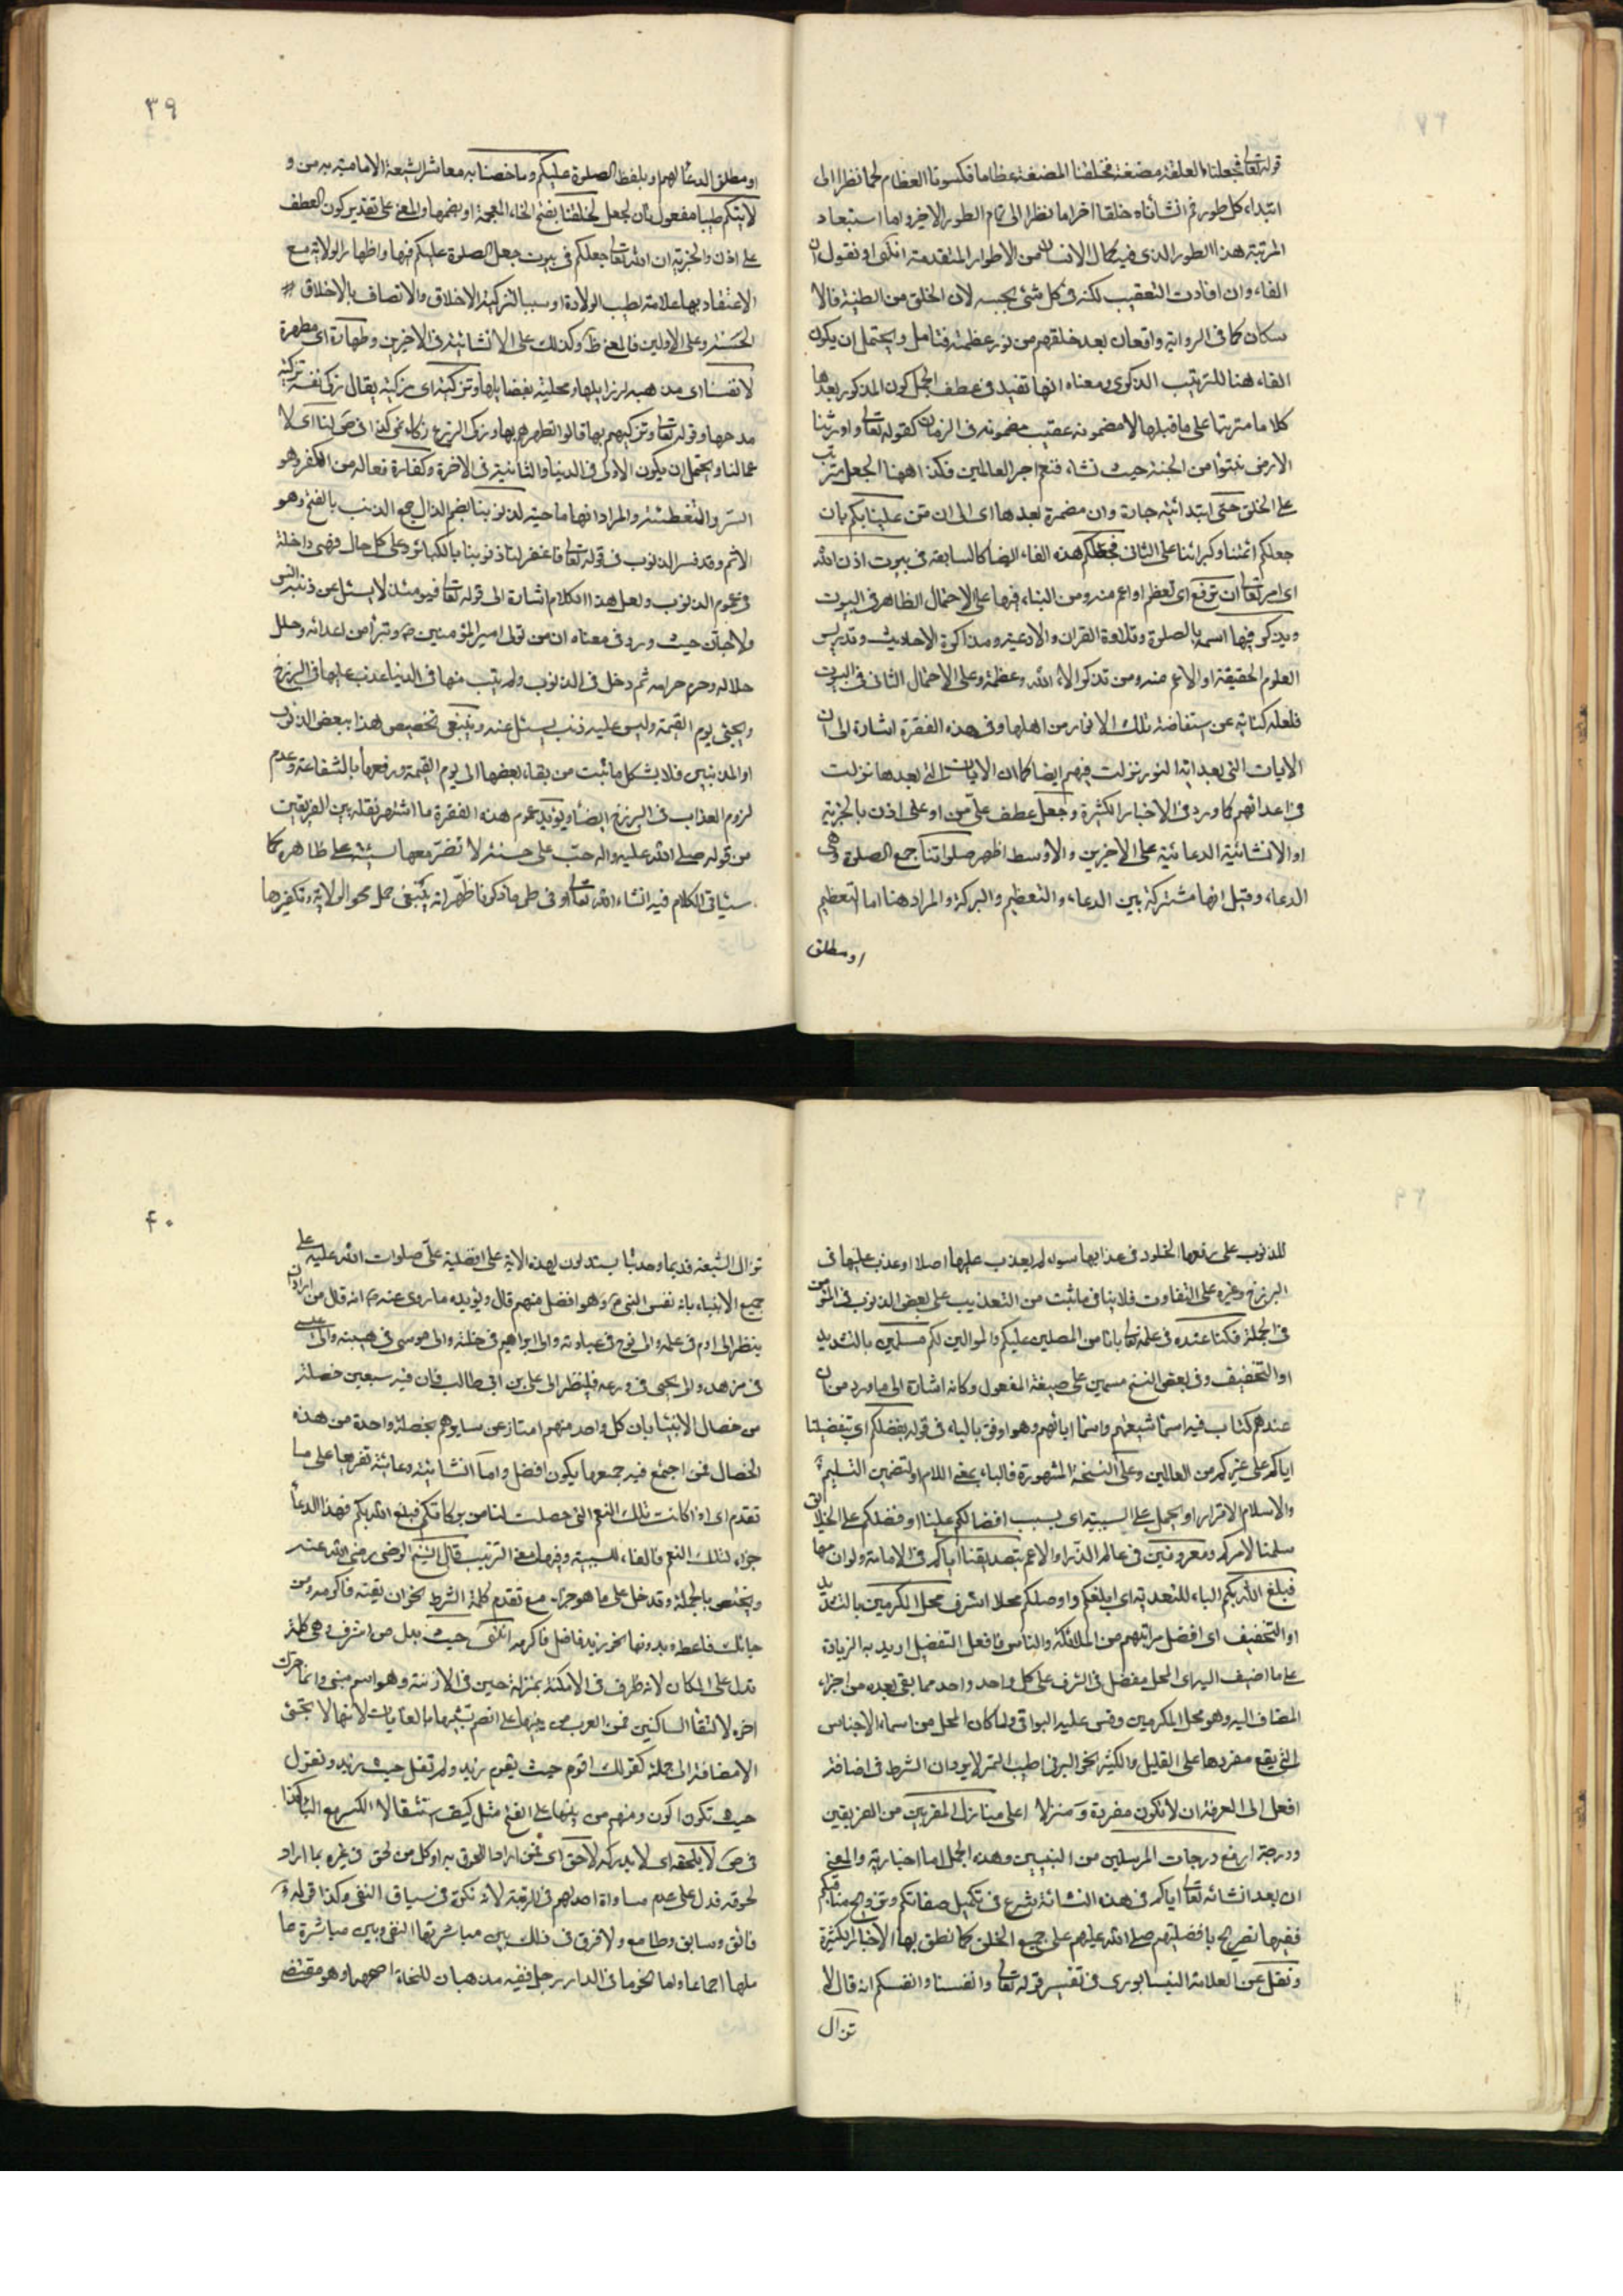 قوله تعالى فجعلنا العلقة مضغة فخلقنا المضغة عظاما فكسونا العظام لحما نظرا الى
ابتداء كل طور ثم انشأناه خلقا اخر اما نظرا الى تمام الطور الاخير واما استبعاد
المرتبة هذا الطور الذى فيه كمال الانسان من الاطوار المتقدمة انتهى او نقول ان
الفاء وان افادت التعقيب لكنه فى كل شئ بحسبه لان الخلق من الطينة فالا
سكان كما فى الرواية واقعان بعد خلقهم من نور عظمته فتامل ويحتمل ان يكون
الفاء هنا للترتيب الذكرى ومعناه انها تفيد فى عطف الجمل كون المذكور بعدها
كلاما مترتبا على ما قبلها لا مضمونه عقيب مضمونه فى الزمان كقوله تعالى واورثنا
الارض نتبوأ من الجنة حيث نشاء فنعم اجر العالمين فكذا ههنا الجعل مترتب
على الخلق حتى ابتدائية جارة وان مضمرة بعدها اى الى ان من علينا بكم بان
جعلكم ائمتنا وكبرائنا على الثانى فجعلكم هذه الفاء ايضا كالسابقة فى بيوت اذن الله
اى امر تعالى ان ترفع اى تعظم او اعم منه ومن البناء فيها على الاحتمال الظاهر فى البيوت
ويذكر فيها اسمه بالصلوة وتلاوة القران والادعية ومذاكرة الاحاديث وتدريس
العلوم الحقيقة او الاعم منه ومن تذكر الاء الله وعظمته وعلى الاحتمال الثانى فى البيوت
فلعله كناية عن استفاضة تلك الانوار من اهلها وفى هذه الفقرة اشارة الى ان
الايات التى بعد اية النور نزلت فيهم ايضا كما ان الايات التى بعدها نزلت
فى اعدائهم كما ورد فى الاخبار الكثيرة وجعل عطف على من او على اذن بالخبرية
او الانشائية الدعائية على الاخيرين والاوسط اظهر صلواتنا جمع الصلوة وهى
الدعاء وقيل انها مشتركة بين الدعاء والتعظيم والبركة والمراد هنا اما التعظيم
او مطلق
٣٩
او مطلق الدعاء لهم او بلفظ الصلوة عليكم وما خصنا به معاشر الشيعة الامامية به من و
لايتكم طيبا مفعول ثان لجعل لخلقنا بفتح الخاء المعجمة او بضمها والمعنى على تقدير كون العطف
على اذن والخبرية ان الله تعالى جعلكم فى بيوت جعل الصلوة عليكم فيها واظهار الولاية مع
الاعتقاد بها علامة لطيب الولادة او سببا لتزكية الاخلاق والاتصاف بالاخلاق
الحسنة وعلى الاولين فالمعنى ظ وكذلك على الانشائية فى الاخيرين وطهارة اى مطهرة
لانفسنا اى مذهبه لرزايلها ومحلية بفضايلها وتزكية اى مزكية يقال زكى نفسه تزكية
مدحها وقوله تعالى وتزكيهم بها قالوا تطهرهم بها وزكى الزرع زكاء نمى كذا فى ص لنا اى لا
عمالنا ويحتمل ان يكون الاولى فى الدنيا والثانية فى الاخرة وكفارة فعالة من الكفر وهو
الستر والتغطئة والمراد انها ماحية لذنوبنا بضم الذال جمع الذنب بالفتح وهو
الاثم وقد فسر الذنوب فى قوله تعالى فاغفر لنا ذنوبنا بالكبائر وعلى كل حال فهى داخلة
فى عموم الذنوب ولعل هذا الكلام اشارة الى قوله تعالى فيومئذ لا يسئل عن ذنبه انس
ولا جان حيث ورد فى معناه ان من تولى امير المؤمنين ع وتبرأ من اعدائه وحلل
حلاله وحرم حرامه ثم دخل فى الذنوب ولم يتب منها فى الدنيا عذب عليها فى البرزخ
ويجئ يوم القيمة وليس عليه ذنب يسئل عنه وينبغى تخصيص هذا ببعض الذنوب
او المذنبين فلا يشكل ما ثبت من بقاء بعضها الى يوم القيمة ورفعها بالشفاعة وعدم
لزوم العذاب فى البرزخ ايضا ويؤيد عموم هذه الفقرة ما اشتهر نقله بين الفريقين
من قوله صلى الله عليه واله حب على حسنة لا تضر معها سيئة على ظاهره كما
سيئاتى الكلام فيه انشاء الله تعالى او فى طى ما ذكرنا ظهر انه ينبغى حمل محو الولاية وتكفيرها
للذنوب على رفعها الخلود فى عذابها سواء لم يعذب عليها اصلا او عذب عليها فى
البرزخ وغيره على التفاوت فلا ينافى ما ثبت من التعذيب على بعض الذنوب فى المؤمن
فى الجملة فكنا عنده فى علمه تعالى بانا من المصلين عليكم والموالين لكم مسلمين بالتشديد
او التخفيف وفى بعض النسخ مسمين على صيغة المفعول وكانه اشارة الى ما ورد من ان
عندهم كتاب فيه اسماء شيعتهم واسماء ابائهم وهو اوفق بالباء فى قوله بفضلكم اى بتفضيلنا
اياكم على غيركم من العالمين وعلى النسخة المشهورة فالباء بمعنى اللام او لتضمين التسليم
والاسلام الاقرار او يحمل على السببية اى بسبب افضالكم علينا او فضلكم على الخلايق
سلمنا لامركم ومعروفين فى عالم الذر او الاعم بتصديقنا اياكم فى الامامة ولوازمها
فبلغ الله بكم الباء للتعدية اى ابلغكم واوصلكم محلا اشرف محل المكرمين بالتشديد
او التخفيف اى افضل مراتبهم من الملائكة والناس فافعل التفضيل اريد به الزيادة
على ما اضيف اليه اى المحل مفضل فى الشرف على كل واحد واحد مما بقى بعده من اجزاء
المضاف اليه وهو محل المكرمين وقس عليه البواقى ولما كان المحل من اسماء الاجناس
التى يقع مفردها على القليل والكثير نحو البرنى اطيب التمر لا يرد ان الشرط فى اضافة
افعل الى المعرفة ان لا تكون مفردة و منزلا اعلى منازل المقربين من الفريقين
ودرجة ارفع درجات المرسلين من النبيين وهذه الجمل اما اخبارية والمعنى
ان بعد انشائه تعالى اياكم فى هذه النشائة شرع فى تكميل صفاتكم وترويج مناقبكم
ففيها تصريح بافضليتهم صلى الله عليهم على جميع الخلق كما نطق بها الاخبار الكثيرة
ونقل عن العلامة النيسابورى فى تفسير قوله تعالى وانفسنا وانفسكم انه قال لا
تزال
٤٠
تزال الشيعة قديما وحديثا يستدلون بهذه الاية على افضلية على صلوات الله عليه على
جميع الانبياء بانه نفس النبى ص وهو افضل منهم قال ويؤيده ما روى عنه ع انه قال من اراد ان
ينظر الى ادم فى علمه والى نوح فى عبادته والى ابراهيم فى خلته والى موسى فى هيبته والى عيسى
فى زهده والى يحيى فى ورعه فلينظر الى على بن ابى طالب فان فيه سبعين خصلة
من خصال الانبياء بان كل واحد منهم امتاز عن سايرهم بخصلة واحدة من هذه
الخصال فمن اجتمع فيه جميعها يكون افضل واما انشائية دعائية تفريعا على ما
تقدم اى اذا كانت تلك النعم التى حصلت لنا من بركاتكم فبلغ الله بكم فهذا الدعاء
جزاء لتلك النعم فالفاء للسببية وفيها معنى الترتيب قال الشيخ الرضى رضى الله عنه
ويختص بالجملة وقد خل على ما هو جزاء مع تقدم كلمة الشرط نحو ان لقيته فاكرمه ومن
جائك فاعطه وبدونها نحو زيد فاضل فاكرمه انتهى حيث بدل من اشرف وهى كلمة
تدل على المكان لانه ظرف فى الامكنة بمنزلة حين فى الازمنة وهو اسم مبنى وانما حرك
اخره لالتقاء الساكنين فمن العرب من يبنيها على الضم تشبيها بالغايات لانها لا تجئ
الا مضافة الى جملة كقولك اقوم حيث يقوم زيد ولم تقل حيث زيد وتقول
حيث تكون اكون ومنهم من يبنيها على الفتح مثل كيف استثقالا للكسر مع الياء كذا
فى ص لا يلحقه اى لا يدركه لاحق اى ممن اراد اللحوق به او كل من لحق فى غيره بما اراد
لحوقه فدل على عدم مساواة احد لهم فى المرتبة لانه نكرة فى سياق النفى وكذا قوله و
فائق وسابق وطامع ولا فرق فى ذلك بين مباشرتها النفى وبين مباشرة ما
ملها اجماعا واما نحو ما فى الدار رجل ففيه مذهبان للنحاة اصحهما وهو مقتضى